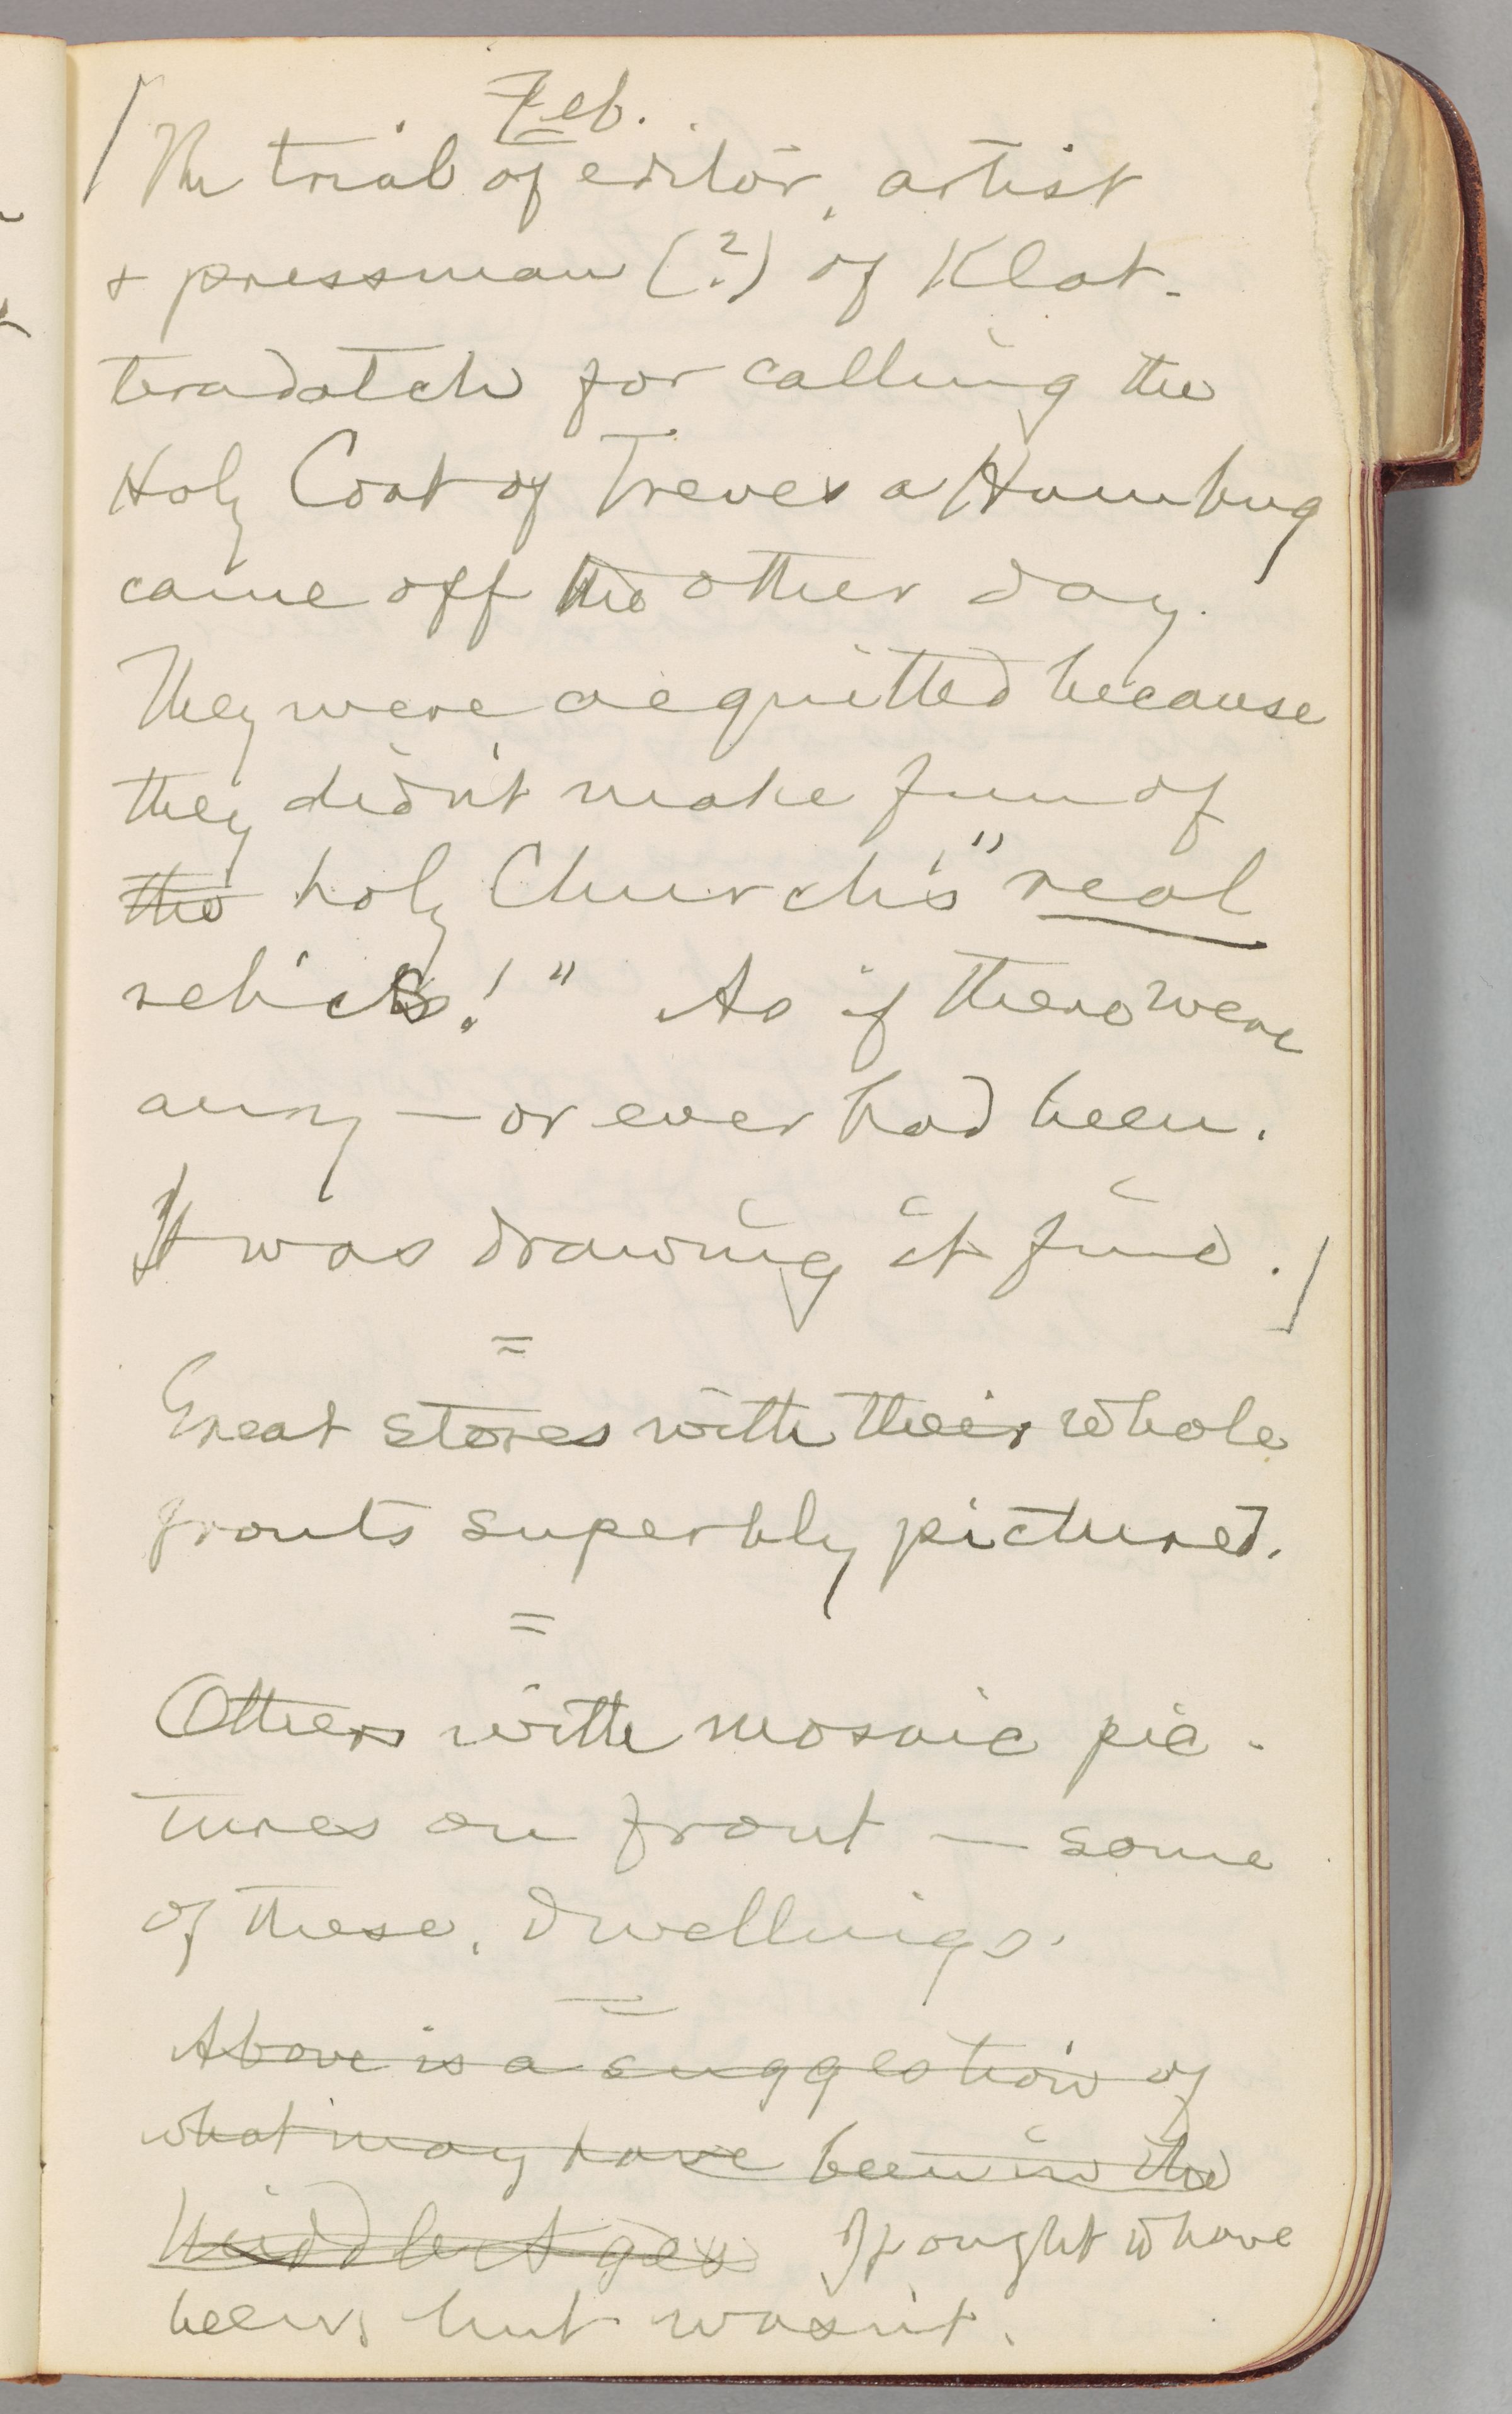 Feb.
[The trial of editor, artist
+ pressman (?) of Klat-
teradatch for calling the
Holy Coat of Treves a Humbug
came off the other day.
They were acquitted because
they didn't make fun of
the holy Church's "real
relics!" As if there were
any — or ever had been.
It was drawing it fine.]
=
Great stores with their whole
fronts superbly pictured.
=
Others with mosaic pic-
tures on front — some
of these, dwellings.
=
Above is a suggestion of
what may have been in the
Middle Ages It ought to have
been, but wasn't.